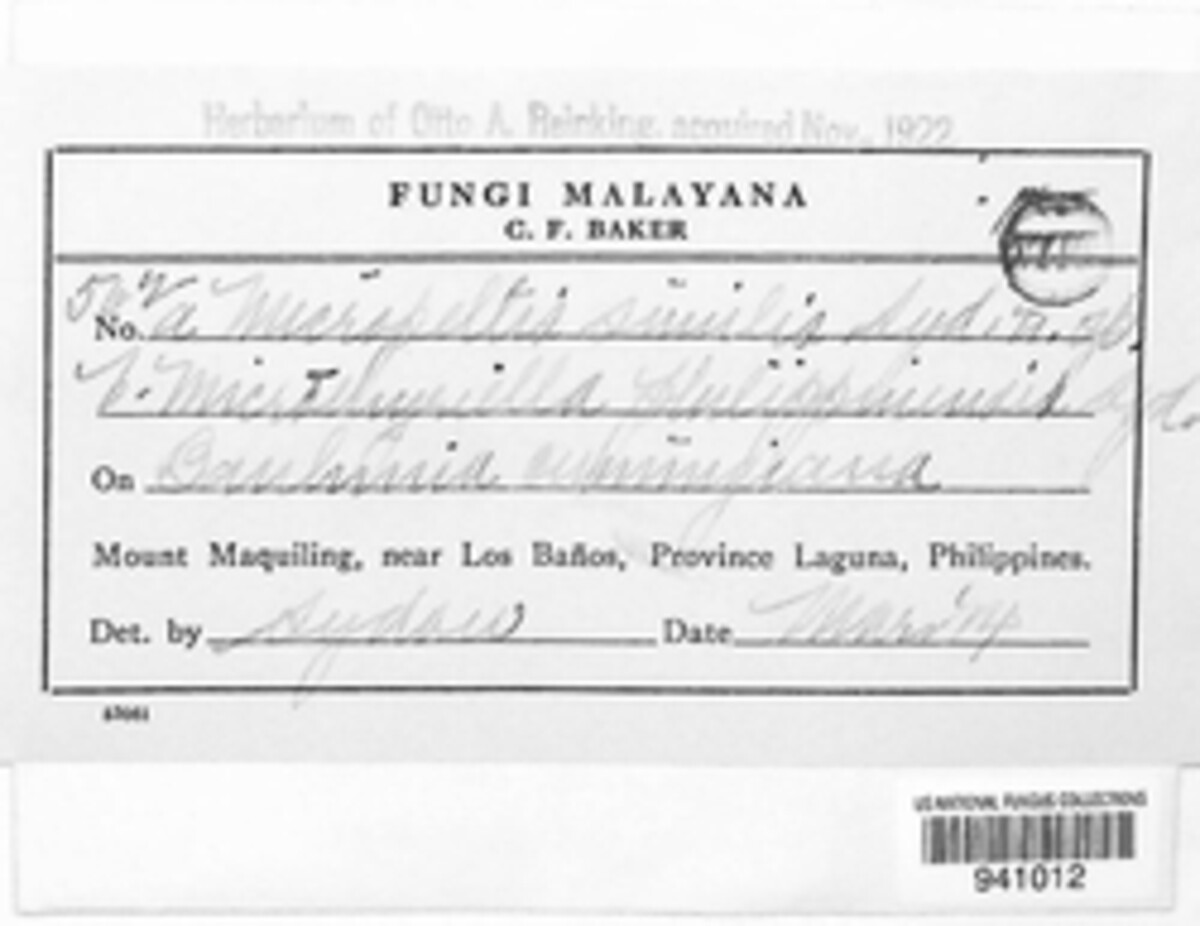 Herbarium of Otto A. Reinking, acquired Nov., 1922
FUNGI MALAYANA
C. F. BAKER
No. a. Micropeltis similis Syd. n. sp.
b. Micothyriella Philippinensis Syd.
On Bauhinia cumingiana
Mount Maquiling, near Los Baños, Province Laguna, Philippines.
Det. by Sydow Date Mar.
US NATIONAL FUNGUS COLLECTIONS
941012